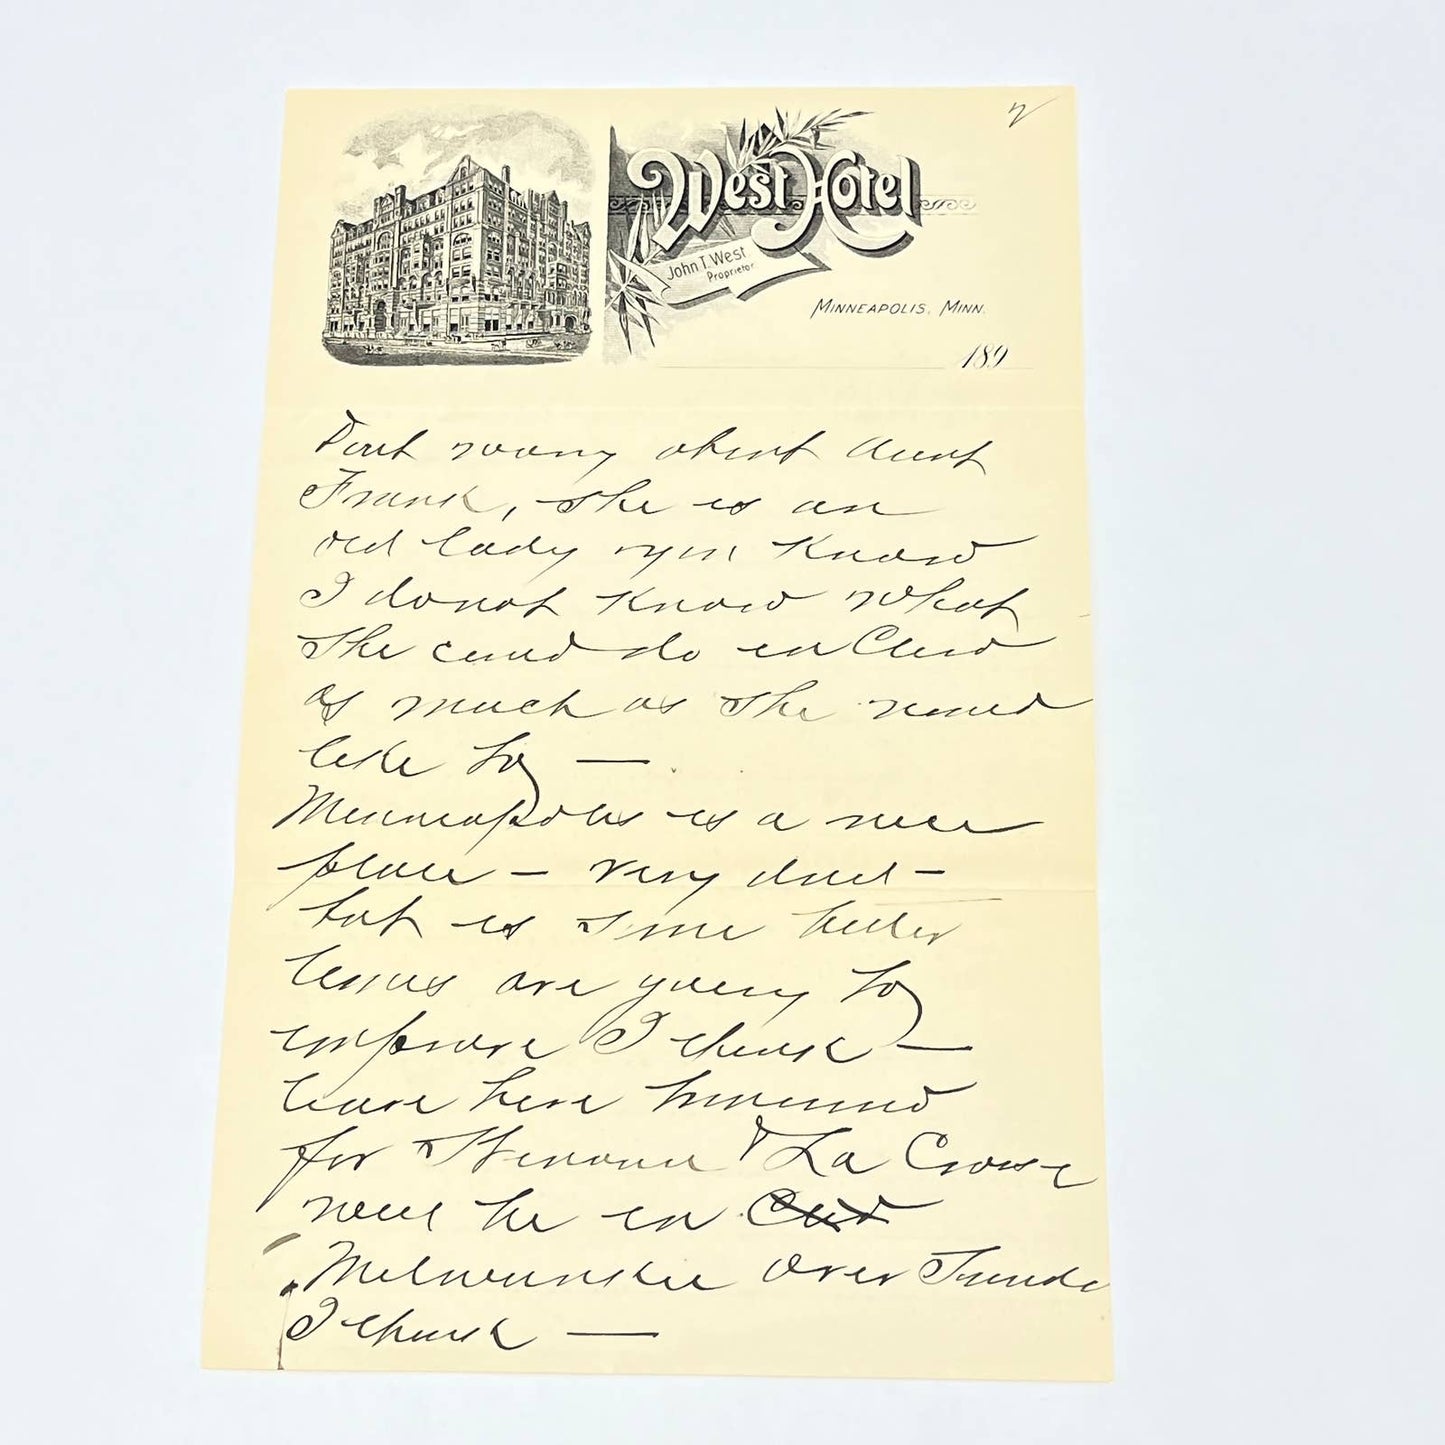 2
West Hotel
John T. West
Proprietor
Minneapolis, Minn.
189
Dont worry about Aunt
Frank, she is an
old lady you know
I do not know what
She could do in Clev
as much as she would
like to —
Minneapolis is a nice
place — very dull —
but is some better
are going to
improve I think —
leave here tomorrow
for Winona & La Crosse
will be in
Milwaukee over Sunday
I think —